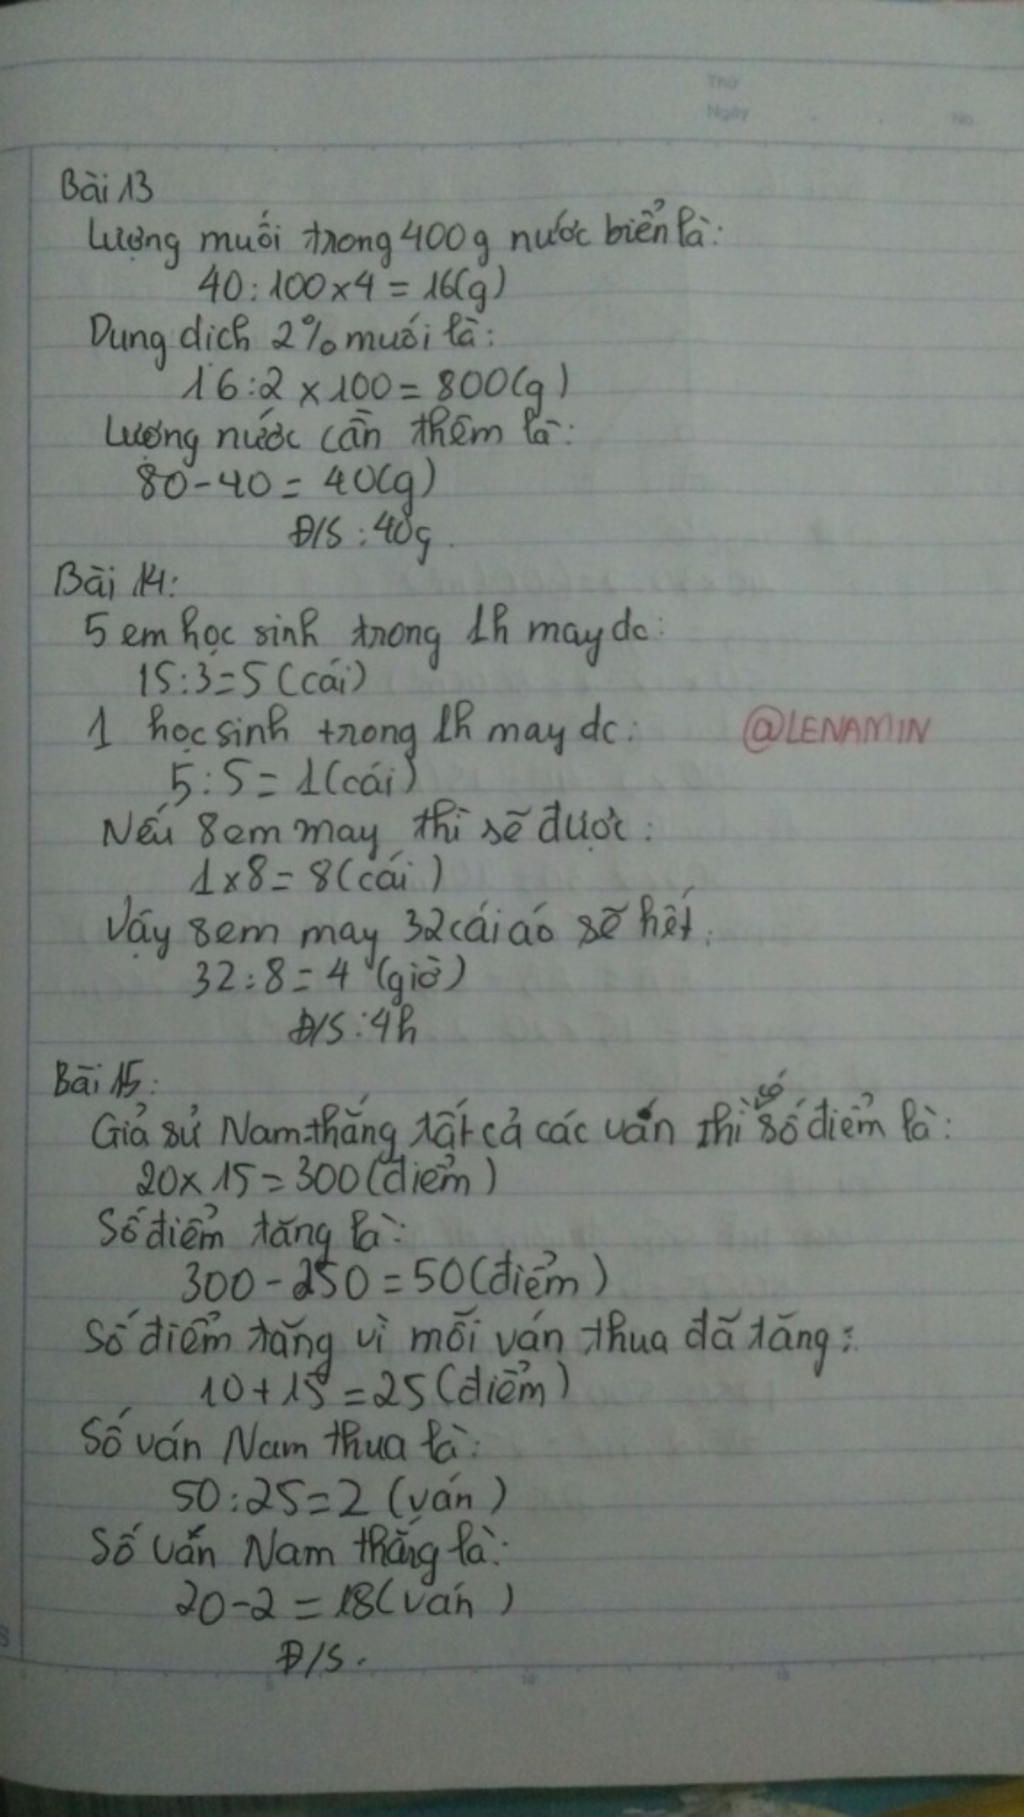 Thứ
Ngày
No.
Bài 13
Lượng muối trong 400g nước biển là:
40:100×4=16(g)
Dung dich 2% muối là:
16:2×100=800(g)
Lượng nước cần thêm là:
80-40=40(g)
Đ/S:40g.
Bài 14:
5 em học sinh trong 1h may dc:
15:3=5(cái)
1 học sinh trong 1h may dc:
@LENAMIN
5:5=1(cái)
Nếu 8em may thì sẽ được:
1×8=8(cái)
Vậy 8em may 32cái áo sẽ hết:
32:8=4(giờ)
Đ/S:4h
Bài 15:
Giả sử Nam thắng tất cả các ván thì có số điểm là:
20×15=300(điểm)
Số điểm tăng là:
300-250=50(điểm)
Số điểm tăng vì mỗi ván thua đã tăng:
10+15=25(điểm)
Số ván Nam thua là:
50:25=2(ván)
Số ván Nam thắng là:
20-2=18(ván)
Đ/S.